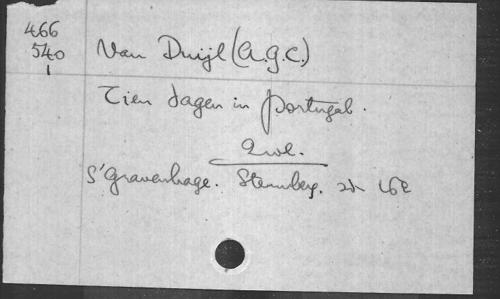 466
540
1
Van Duijl (A.G.C.)
Tien dagen in Portugal.
2 vol.
S'Gravenhage. Stemberg.